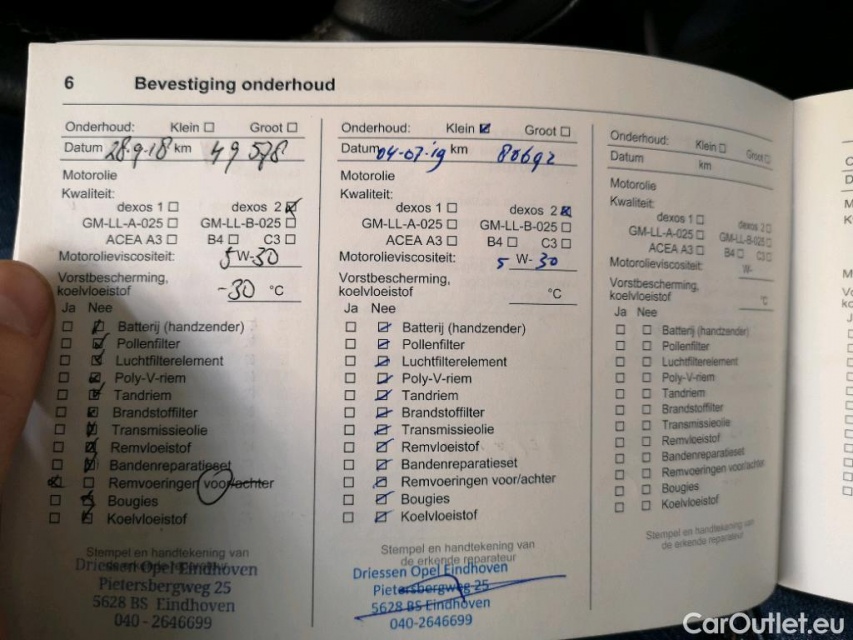 6 Bevestiging onderhoud
Onderhoud: Klein Groot
Datum 28.9.18 km 49578
Motorolie
Kwaliteit:
dexos 1 dexos 2
GM-LL-A-025 GM-LL-B-025
ACEA A3 B4 C3
Motorolieviscositeit: 5 W-30
Vorstbescherming,
koelvloeistof -30 °C
Ja Nee
Batterij (handzender)
Pollenfilter
Luchtfilterelement
Poly-V-riem
Tandriem
Brandstoffilter
Transmissieolie
Remvloeistof
Bandenreparatieset
Remvoeringen voor/achter
Bougies
Koelvloeistof
Stempel en handtekening van
de erkende reparateur
Driessen Opel Eindhoven
Pietersbergweg 25
5628 BS Eindhoven
040-2646699
Onderhoud: Klein Groot
Datum 04-07-19 km 80692
Motorolie
Kwaliteit:
dexos 1 dexos 2
GM-LL-A-025 GM-LL-B-025
ACEA A3 B4 C3
Motorolieviscositeit: 5 W-30
Vorstbescherming,
koelvloeistof °C
Ja Nee
Batterij (handzender)
Pollenfilter
Luchtfilterelement
Poly-V-riem
Tandriem
Brandstoffilter
Transmissieolie
Remvloeistof
Bandenreparatieset
Remvoeringen voor/achter
Bougies
Koelvloeistof
Stempel en handtekening van
de erkende reparateur
Driessen Opel Eindhoven
Pietersbergweg 25
5628 BS Eindhoven
040-2646699
Onderhoud: Klein Groot
Datum km
Motorolie
Kwaliteit:
dexos 1 dexos 2
GM-LL-A-025 GM-LL-B-025
ACEA A3 B4 C3
Motorolieviscositeit: W-
Vorstbescherming,
koelvloeistof °C
Ja Nee
Batterij (handzender)
Pollenfilter
Luchtfilterelement
Poly-V-riem
Tandriem
Brandstoffilter
Transmissieolie
Remvloeistof
Bandenreparatieset
Remvoeringen voor/achter
Bougies
Koelvloeistof
Stempel en handtekening van
de erkende reparateur
CarOutlet.eu